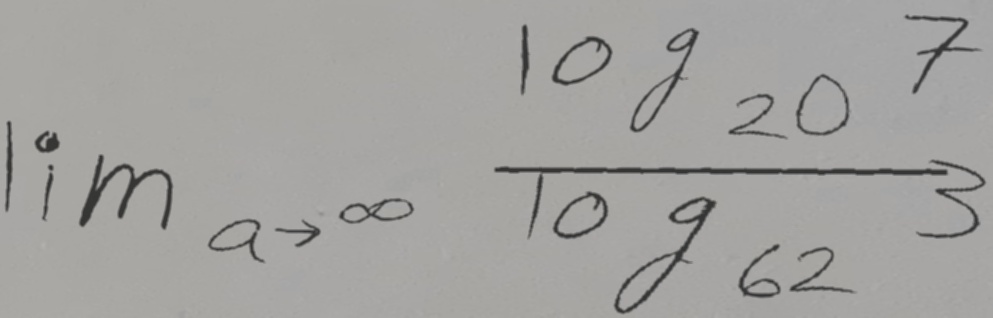 lim a→∞ log 20 7
log 62 3